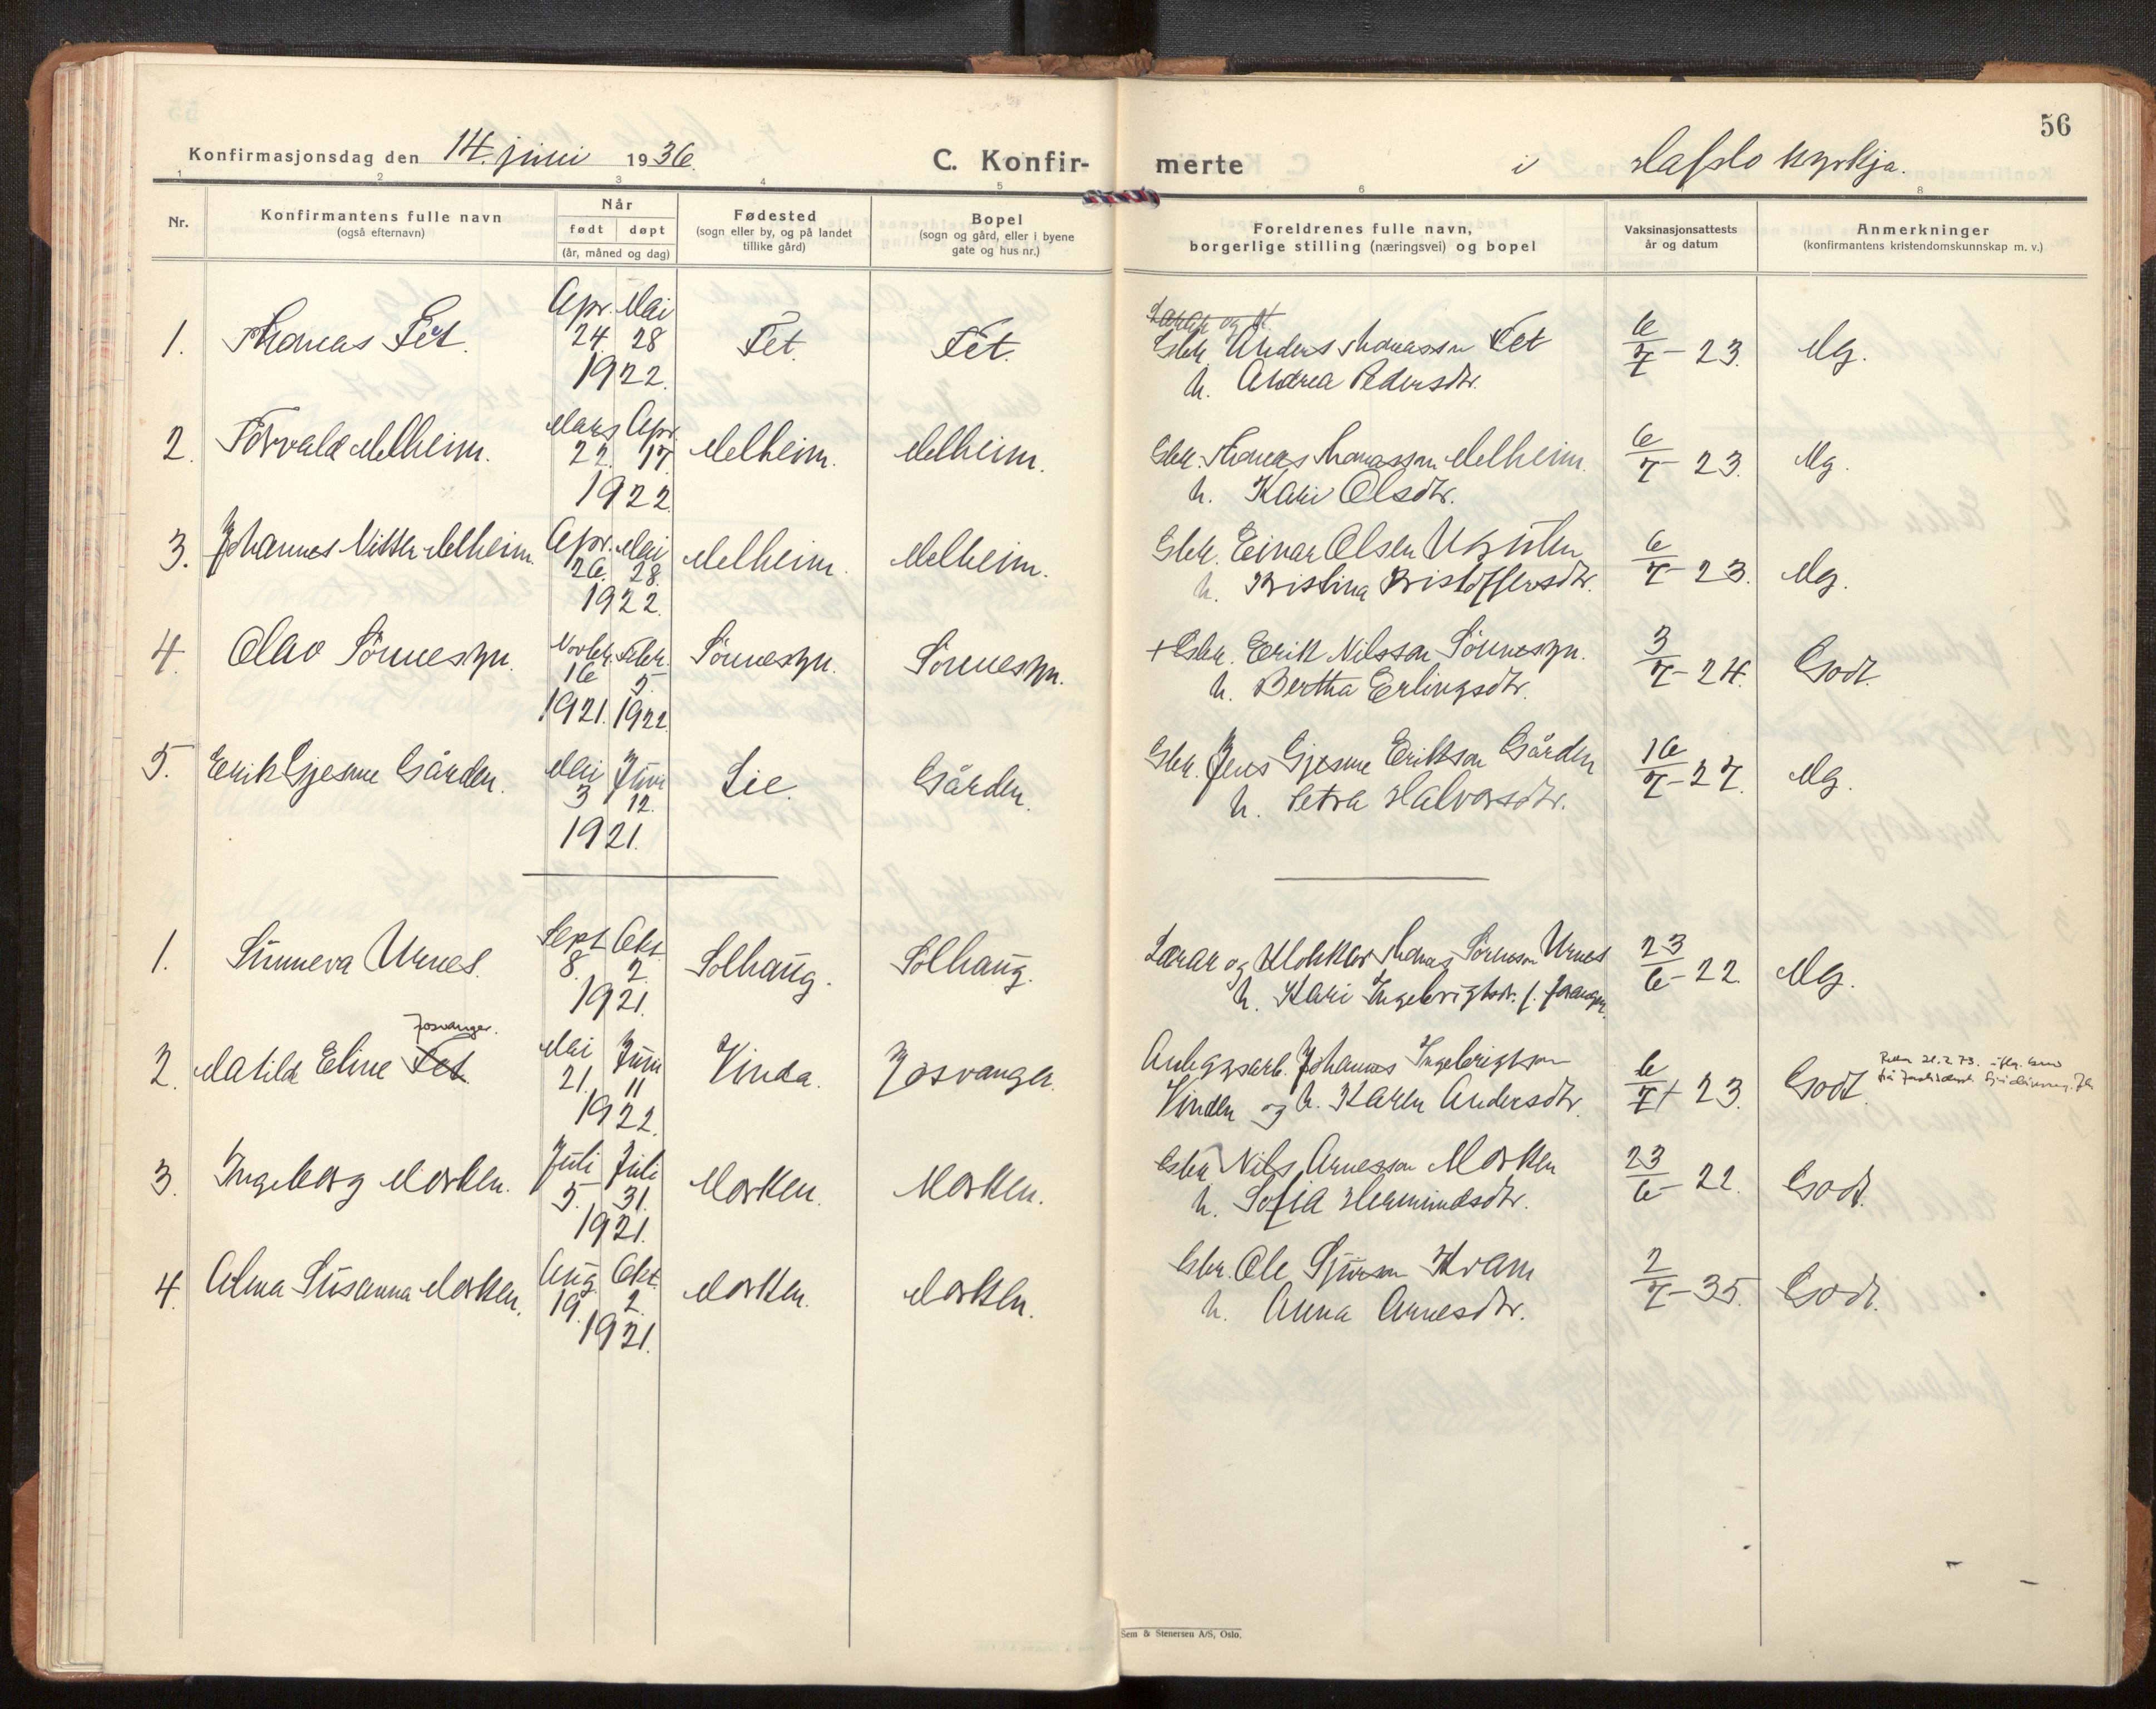 56
Konfirmasjonsdag den 14. juni 1936.
C. Konfir-
merte i Hafslo kyrkja.
1 2 3 4 5 6 8
Nr.
Konfirmantens fulle navn
(også efternavn)
Når
født døpt
(år, måned og dag)
Fødested
(sogn eller by, og på landet
tillike gård)
Bopel
(sogn og gård, eller i byene
gate og hus nr.)
Foreldrenes fulle navn,
borgerlige stilling (næringsvei) og bopel
Vaksinasjonsattests
år og datum
Anmerkninger
(konfirmantens kristendomskunnskap m. v.)
1. Thomas Fet. Apr. 24 Mai 28 1922. Fet. Fet.
Lærar og k
Gbr. Anders Thomasson Fet
h. Andrea Pedersdtr.
6/7 - 23. Mg.
2. Torvald Melheim. Mars 22. Apr. 17. 1922. Melheim. Melheim.
Gbr. Thomas Thomasson Melheim.
h. Kari Olsdtr.
6/7 - 23. Mg.
3. Johannes Nitter Melheim. Apr. 26. Mai 28. 1922. Melheim. Melheim.
Gbr. Einar Olsen
h. Kristina Kristoffersdtr.
6/7 - 23. Mg.
4. Olav Sønnesyn. Novbr. 16 1921. Febr. 5. 1922 Sønnesyn. Sønnesyn.
+ Gbr. Erik Nilsson Sønnesyn.
h. Bertha Erlingsdtr.
3/7 - 24. Godt.
5. Erik Gjesme Gården. Mai 3 Juni 12. 1921. Lie. Gården.
Gbr. Jens Gjesme Eriksson Gården
h. Petra Halvorsdtr.
16/7 - 27. Mg.
1. Sunneva Urnes. Sept. 8. Okt. 2. 1921. Solhaug. Solhaug.
Lærar og klokkar Thomas Sørensson Urnes
h. Kari Ingebrigtsdr. f.
23/6 - 22. Mg.
Josvanger.
2. Matilde Eline Fet Mai 21. Juni 11 1922. Vinda. Josvanger.
Anleggsarb. Johannes Ingebrigtson
Vinden og h. Karen Andersdtr.
6/7 + 23. Godt.
3. Ingeborg Morken. Juli 5. Juli 31. 1921. Morken. Morken.
Gbr. Nils Arnesson Morken
h. Sofia Hermundsdtr.
23/6 - 22. Godt.
4. Alma Susanna Morken. Aug 19. Okt. 2. 1921. Morken. Morken.
Gbr. Ole Sjurson Kvam
h. Anna Arnesdtr.
2/7 - 35. Godt.
Sem & Stenersen A/S, Oslo.